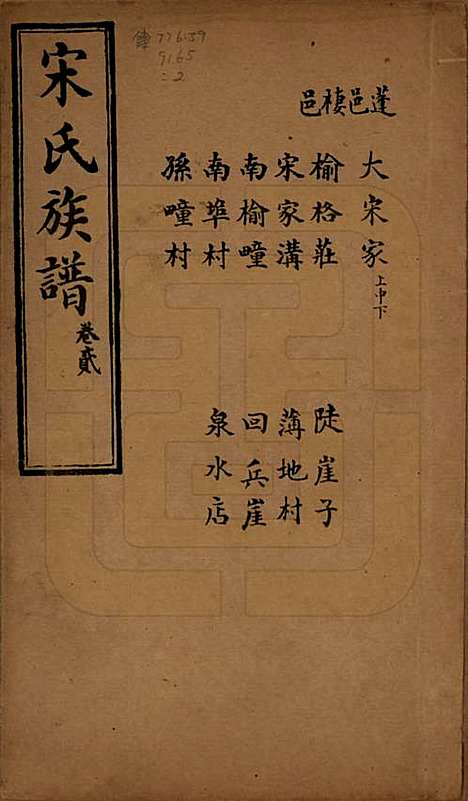 宋氏族譜 卷貳
傳 776.39
9165
:2
蓬邑棲邑
大宋家 上中下
榆格莊 陡崖子
宋家溝 薄地村
南榆疃 回兵崖
南埠村 泉水店
孫疃村